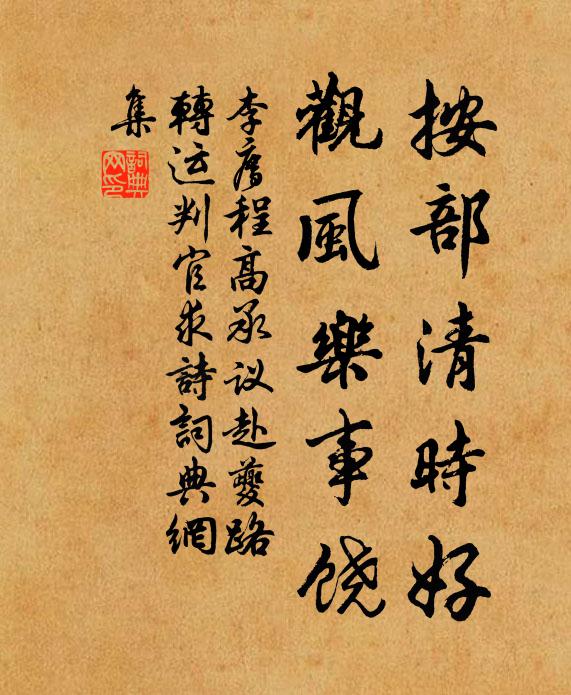 按部清時好
觀風樂事饶
李廌程高承议赴夔路
轉运判官求詩詞典網
集
詞典网印